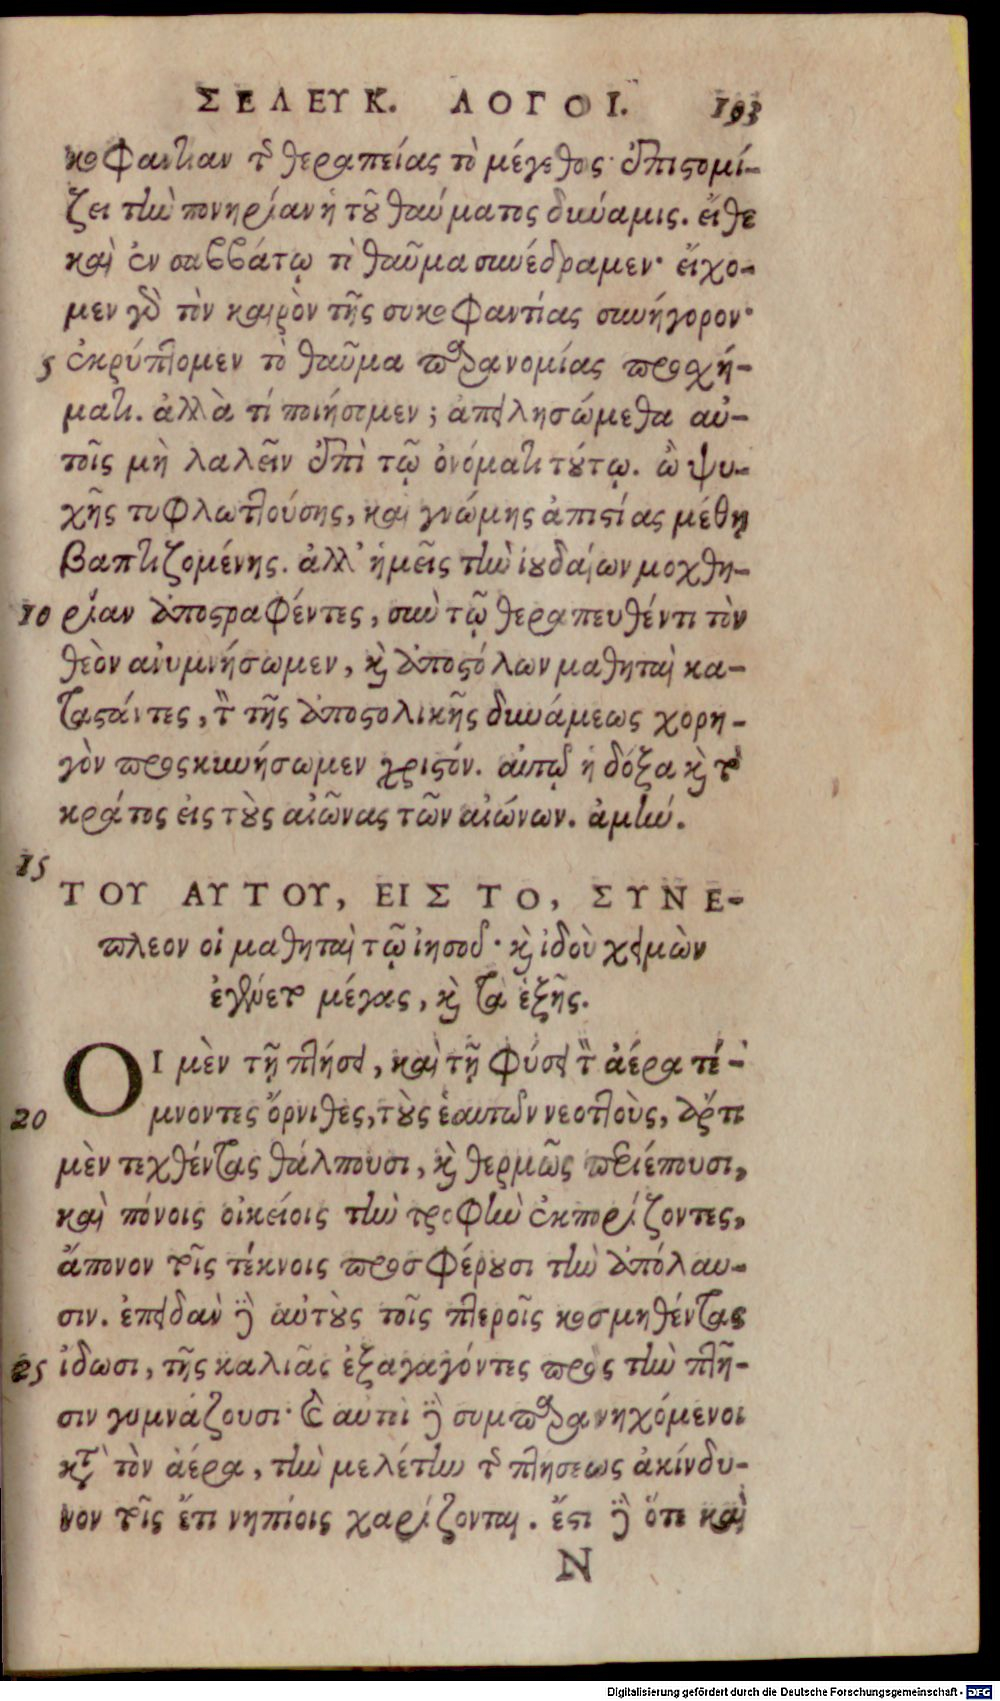 ΣΕΛΕΥΚ. ΛΟΓΟΙ. 193
κοφαντίαν τῆς θεραπείας τὸ μέγεθος· ἐπιστομί-
ζει τὴν πονηρίαν ἡ τοῦ θαύματος δύναμις. εἴθε
καὶ ἐν σαββάτῳ τὸ θαῦμα συνέδραμεν· εἴχο-
μεν γὸ τὸν καιρὸν τῆς συκοφαντίας συνήγορον·
5 ἐκρύπτομεν τὸ θαῦμα παρανομίας προσχή-
ματι. ἀλλὰ τί ποιήσομεν; ἀπειλησώμεθα αὐ-
τοῖς μὴ λαλεῖν ἐπὶ τῷ ὀνόματι τούτῳ. ὢ ψυ-
χῆς τυφλωττούσης, καὶ γνώμης ἀπιστίας μέθῃ
βαπτιζομένης. ἀλλ' ἡμεῖς τὴν ἰουδαίων μοχθη-
10 ρίαν ἀποστραφέντες, σὺν τῷ θεραπευθέντι τὸν
θεὸν ἀνυμνήσωμεν, καὶ ἀποστόλων μαθηταὶ κα-
ταστάντες, τὸν τῆς ἀποστολικῆς δυνάμεως χορη-
γὸν προσκυνήσωμεν χριστόν. αὐτῷ ἡ δόξα καὶ τὸ
κράτος εἰς τοὺς αἰῶνας τῶν αἰώνων. ἀμήν.
15
ΤΟΥ ΑΥΤΟΥ, ΕΙΣ ΤΟ, ΣΥΝΕ-
πλεον οἱ μαθηταὶ τῷ ἰησοῦ· καὶ ἰδοὺ χειμὼν
ἐγένετο μέγας, καὶ τὰ ἑξῆς.
ΟΙ μὲν τῇ πτήσει, καὶ τῇ φύσει τὸν ἀέρα τέ-
20 μνοντες ὄρνιθες, τοὺς ἑαυτῶν νεοττοὺς, ἄρτι
μὲν τεχθέντας θάλπουσι, καὶ θερμῶς περιέπουσι,
καὶ πόνοις οἰκείοις τὴν τροφὴν ἐκπορίζοντες,
ἄπονον τοῖς τέκνοις προσφέρουσι τὴν ἀπόλαυ-
σιν. ἐπειδὰν δὲ αὐτοὺς τοῖς πτεροῖς κοσμηθέντας
25 ἴδωσι, τῆς καλιᾶς ἐξαγαγόντες πρὸς τὴν πτῆ-
σιν γυμνάζουσι· καὶ αὐτοὶ δὲ συμπαρανηχόμενοι
κατὰ τὸν ἀέρα, τὴν μελέτην τῆς πτήσεως ἀκίνδυ-
νον τοῖς ἔτι νηπίοις χαρίζονται. ἔστι δὲ ὅτε καὶ
N
Digitalisierung gefördert durch die Deutsche Forschungsgemeinschaft - DFG